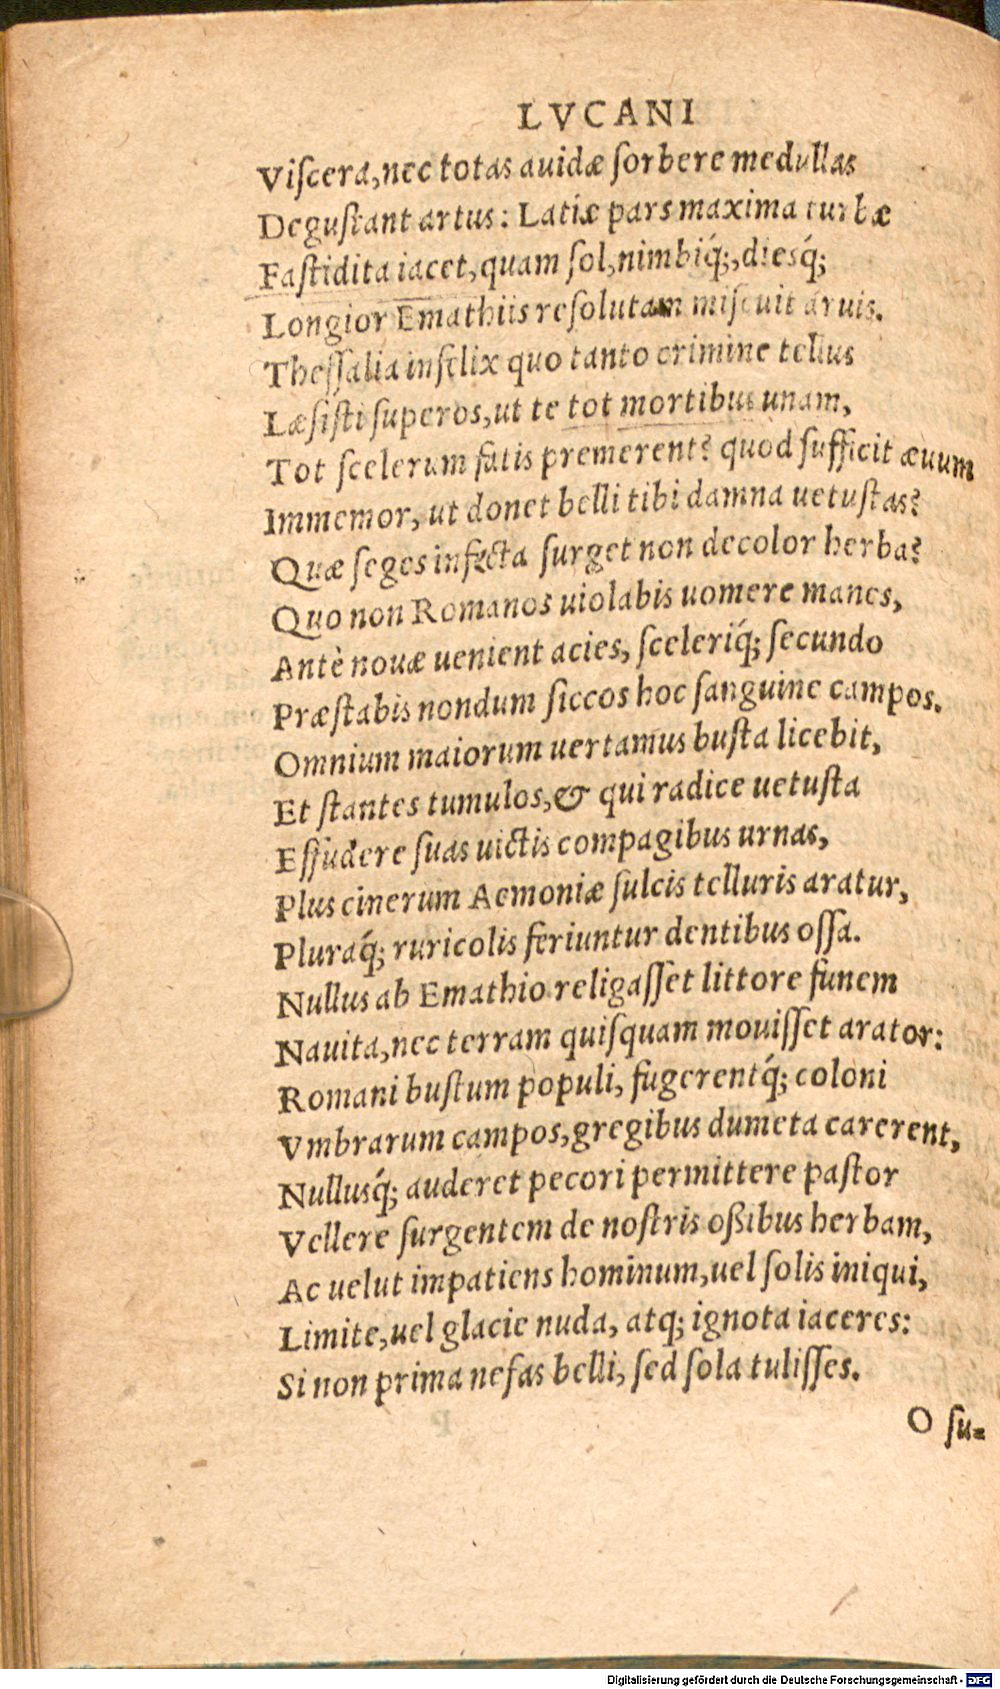 LVCANI
Viſcera,nec totas auidæ ſorbere medullas
Deguſtant artus: Latiæ pars maxima turbæ
Faſtidita iacet,quam ſol,nimbiq́;,diesq́;
Longior Emathiis reſolutam miſcuit aruis.
Theſſalia infelix quo tanto crimine tellus
Læſiſti ſuperos,ut te tot mortibus unam,
Tot ſcelerum fatis premerent? quod ſufficit æuum
Immemor, ut donet belli tibi damna uetuſtas?
Quæ ſeges infecta ſurget non decolor herba?
Quo non Romanos uiolabis uomere manes,
Antè nouæ uenient acies, ſceleriq́; ſecundo
Præſtabis nondum ſiccos hoc ſanguine campos.
Omnium maiorum uertamus buſta licebit,
Et ſtantes tumulos,& qui radice uetuſta
Effudere ſuas uictis compagibus urnas,
Plus cinerum Aemoniæ ſulcis telluris aratur,
Pluraq́; ruricolis feriuntur dentibus oſſa.
Nullus ab Emathio religaſſet littore funem
Nauita,nec terram quiſquam mouiſſet arator:
Romani buſtum populi, fugerentq́; coloni
Vmbrarum campos,gregibus dumeta carerent,
Nullusq́; auderet pecori permittere paſtor
Vellere ſurgentem de noſtris oßibus herbam,
Ac uelut impatiens hominum,uel ſolis iniqui,
Limite,uel glacie nuda, atq; ignota iaceres:
Si non prima nefas belli, ſed ſola tuliſſes.
O ſu-
Digitalisierung gefördert durch die Deutsche Forschungsgemeinschaft - DFG